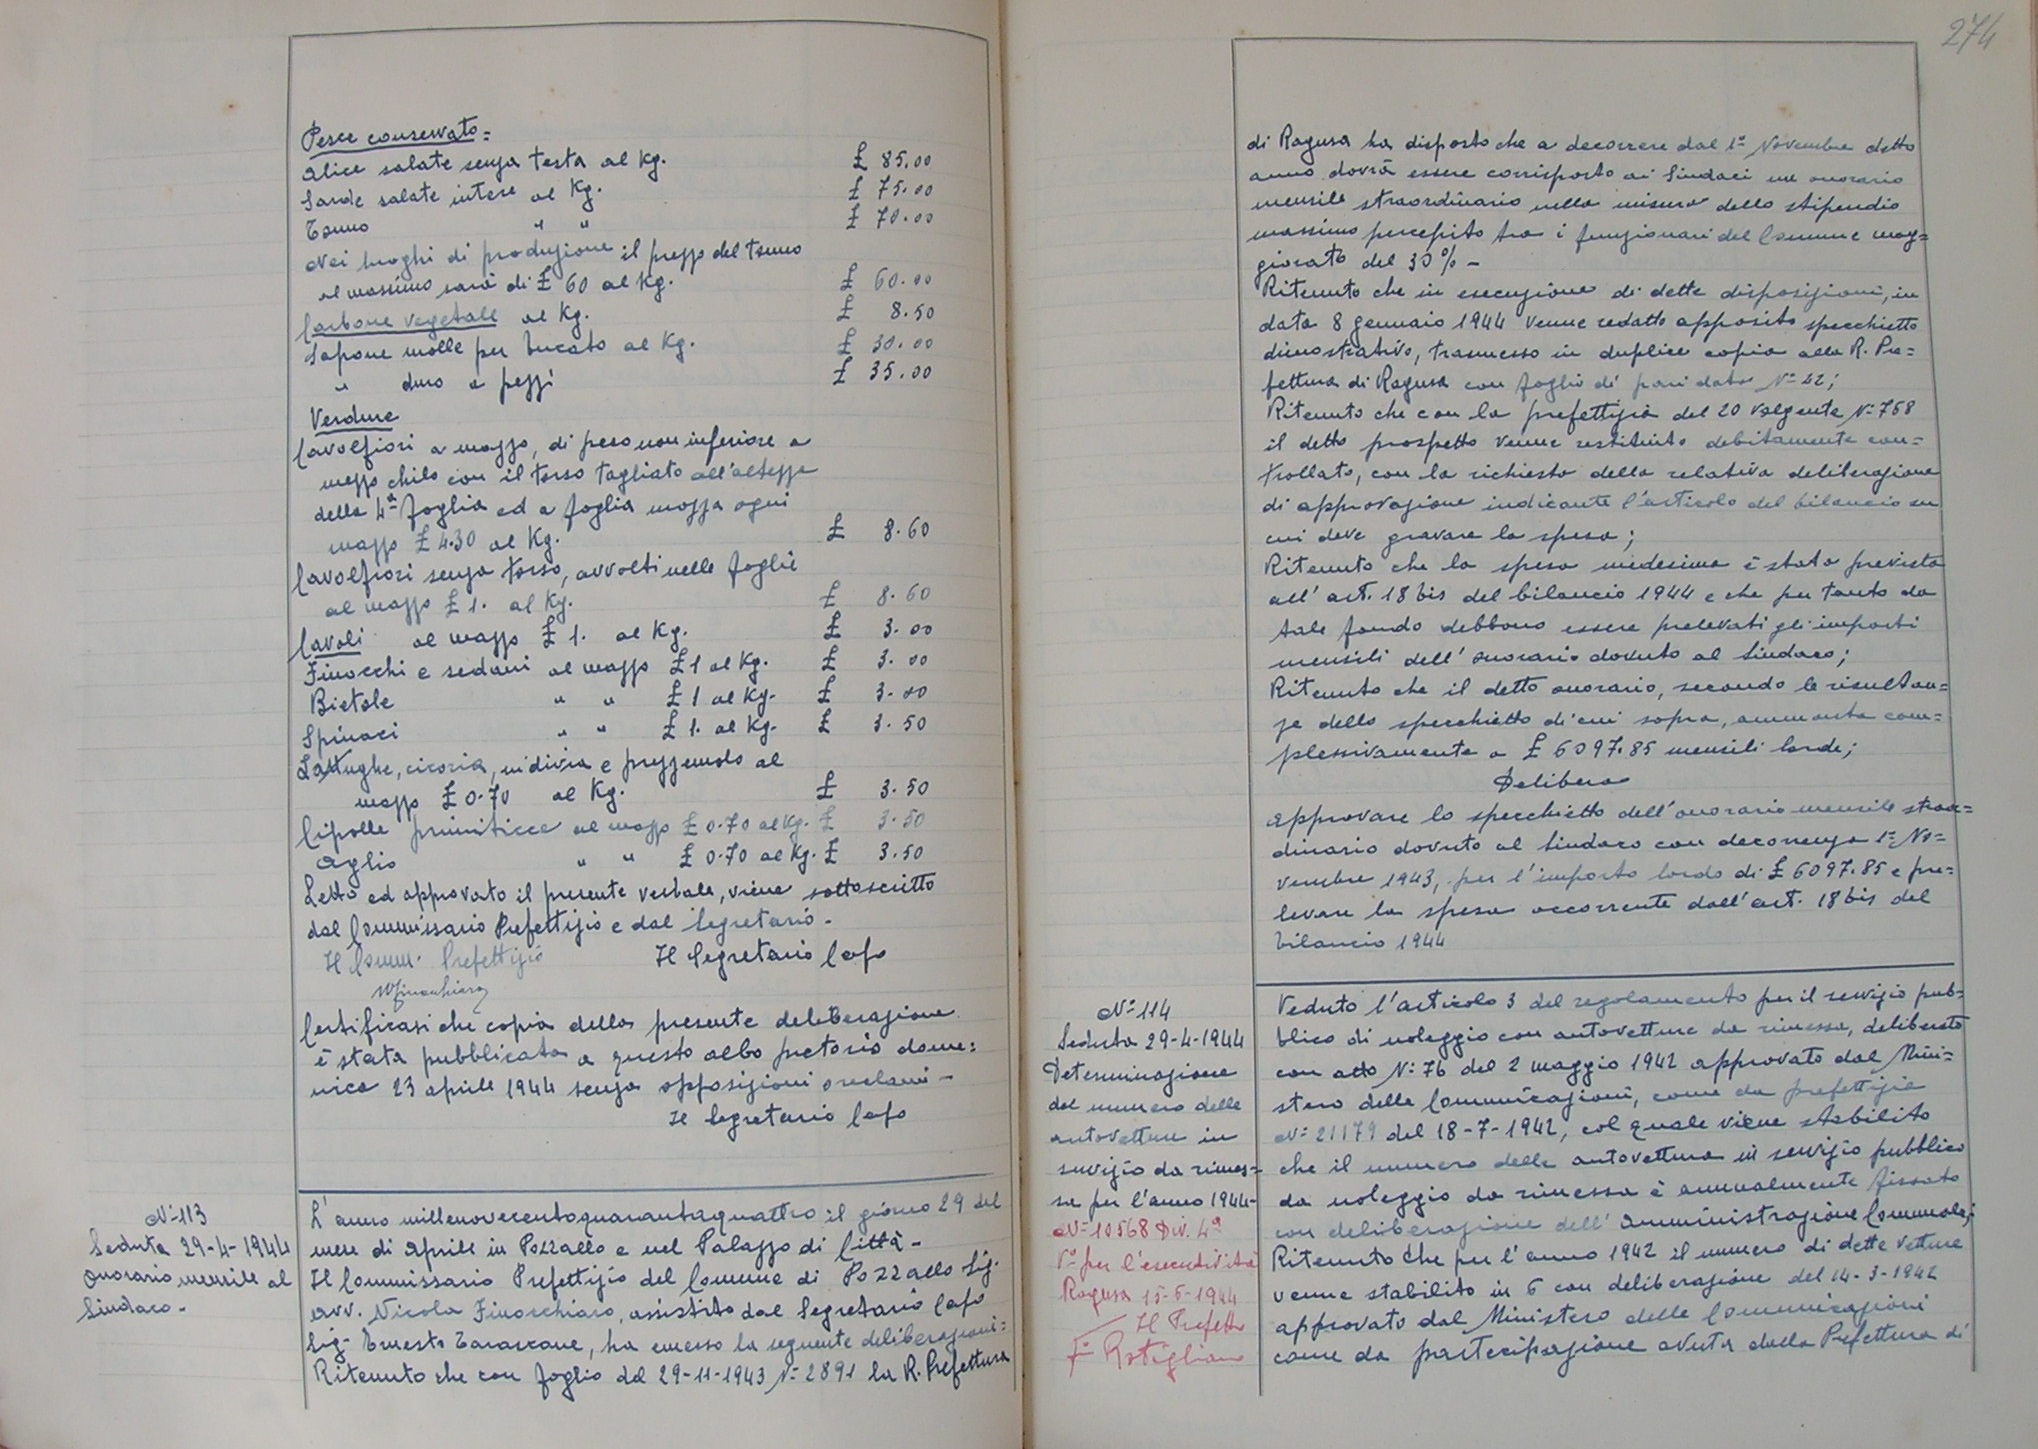 Pesce conservato=
Alice salate senza testa al Kg. £ 85.00
Sarde salate intere al Kg. £ 75.00
Tonno " " £ 70.00
Nei luoghi di produzione il prezzo del tonno
al massimo sarà di £ 60 al Kg. £ 60.00
Carbone vegetale al Kg. £ 8.50
Sapone molle per bucato al Kg. £ 30.00
" duro a pezzi £ 35.00
Verdure
Cavolfiori a mazzo, di peso non inferiore a
mezzo chilo con il torso tagliato all'altezza
della 4ª foglia ed a foglia mozza ogni
mazzo £ 4.30 al Kg. £ 8.60
Cavolfiori senza torso, avvolti nelle foglie
al mazzo £ 1. al Kg. £ 8.60
Cavoli al mazzo £ 1. al Kg. £ 3.00
Finocchi e sedani al mazzo £ 1 al Kg. £ 3.00
Bietole " " £ 1 al Kg. £ 3.00
Spinaci " " £ 1. al Kg. £ 3.50
Lattughe, cicoria, indivia e prezzemolo al
mazzo £ 0.70 al Kg. £ 3.50
Cipolle primiticce al mazzo £ 0.70 al Kg. £ 3.50
Aglio " " £ 0.70 al Kg. £ 3.50
Letto ed approvato il presente verbale, viene sottoscritto
dal Commissario Prefettizio e dal Segretario-
Il Comm. Prefettizio Il Segretario Capo
Certificasi che copia della presente deliberazione
è stata pubblicata a questo albo pretorio dome=
nica 23 aprile 1944 senza opposizioni o reclami-
Il Segretario Capo
N° 113
Seduta 29-4-1944
Onorario mensile al
Sindaco-
L'anno millenovecentoquarantaquattro il giorno 29 del
mese di Aprile in Pozzallo e nel Palazzo di Città-
Il Commissario Prefettizio del Comune di Pozzallo Sig.
avv. Nicola Finocchiaro, assistito dal Segretario Capo
Sig. Ernesto Tarascone, ha emesso la seguente deliberazioni=
Ritenuto che con foglio del 29-11-1943 N° 2891 la R. Prefettura
274
di Ragusa ha disposto che a decorrere dal 1° Novembre detto
anno dovrà essere corrisposto ai Sindaci un onorario
mensile straordinario nella misura dello stipendio
massimo percepito tra i funzionari del Comune mag=
giorato del 30%-
Ritenuto che in esecuzione di dette disposizioni, in
data 8 gennaio 1944 venne redatto apposito specchietto
dimostrativo, trasmesso in duplice copia alla R. Pre=
fettura di Ragusa con foglio di pari data N° 42;
Ritenuto che con la prefettizia del 20 volgente N° 768
il detto prospetto venne restituito debitamente con=
trollato, con la richiesta della relativa deliberazione
di approvazione indicante l'articolo del bilancio su
cui deve gravare la spesa;
Ritenuto che la spesa medesima è stata prevista
all'art. 18 bis del bilancio 1944 e che per tanto da
tale fondo debbono essere prelevati gli importi
mensili dell'onorario dovuto al Sindaco;
Ritenuto che il detto onorario, secondo le risultan=
ze dello specchietto di cui sopra, ammonta com=
plessivamente a £ 6097.85 mensili lorde;
Delibera
approvare lo specchietto dell'onorario mensile straor=
dinario dovuto al Sindaco con decorrenza 1° No=
vembre 1943, per l'importo lordo di £ 6097.85 e pre=
levare la spesa occorrente dall'art. 18 bis del
bilancio 1944
N° 114
Seduta 29-4-1944
Determinazione
del numero delle
autovetture in
servizio da rimes=
sa per l'anno 1944-
N° 10568 Div. 4ª
V° per l'esecutività
Ragusa 15-6-1944
Il Prefetto
Veduto l'articolo 3 del regolamento per il servizio pub=
blico di noleggio con autovetture da rimessa, deliberato
con atto N° 76 del 2 maggio 1942 approvato dal Mini=
stero delle Comunicazioni, come da prefettizia
N° 21179 del 18-7-1942, col quale viene stabilito
che il numero delle autovetture in servizio pubblico
da noleggio da rimessa è annualmente fissato
con deliberazione dell'amministrazione Comunale;
Ritenuto che per l'anno 1942 il numero di dette vetture
venne stabilito in 6 con deliberazione del 14-3-1942
approvato dal Ministero delle Comunicazioni
come da partecipazione avuta dalla Prefettura di